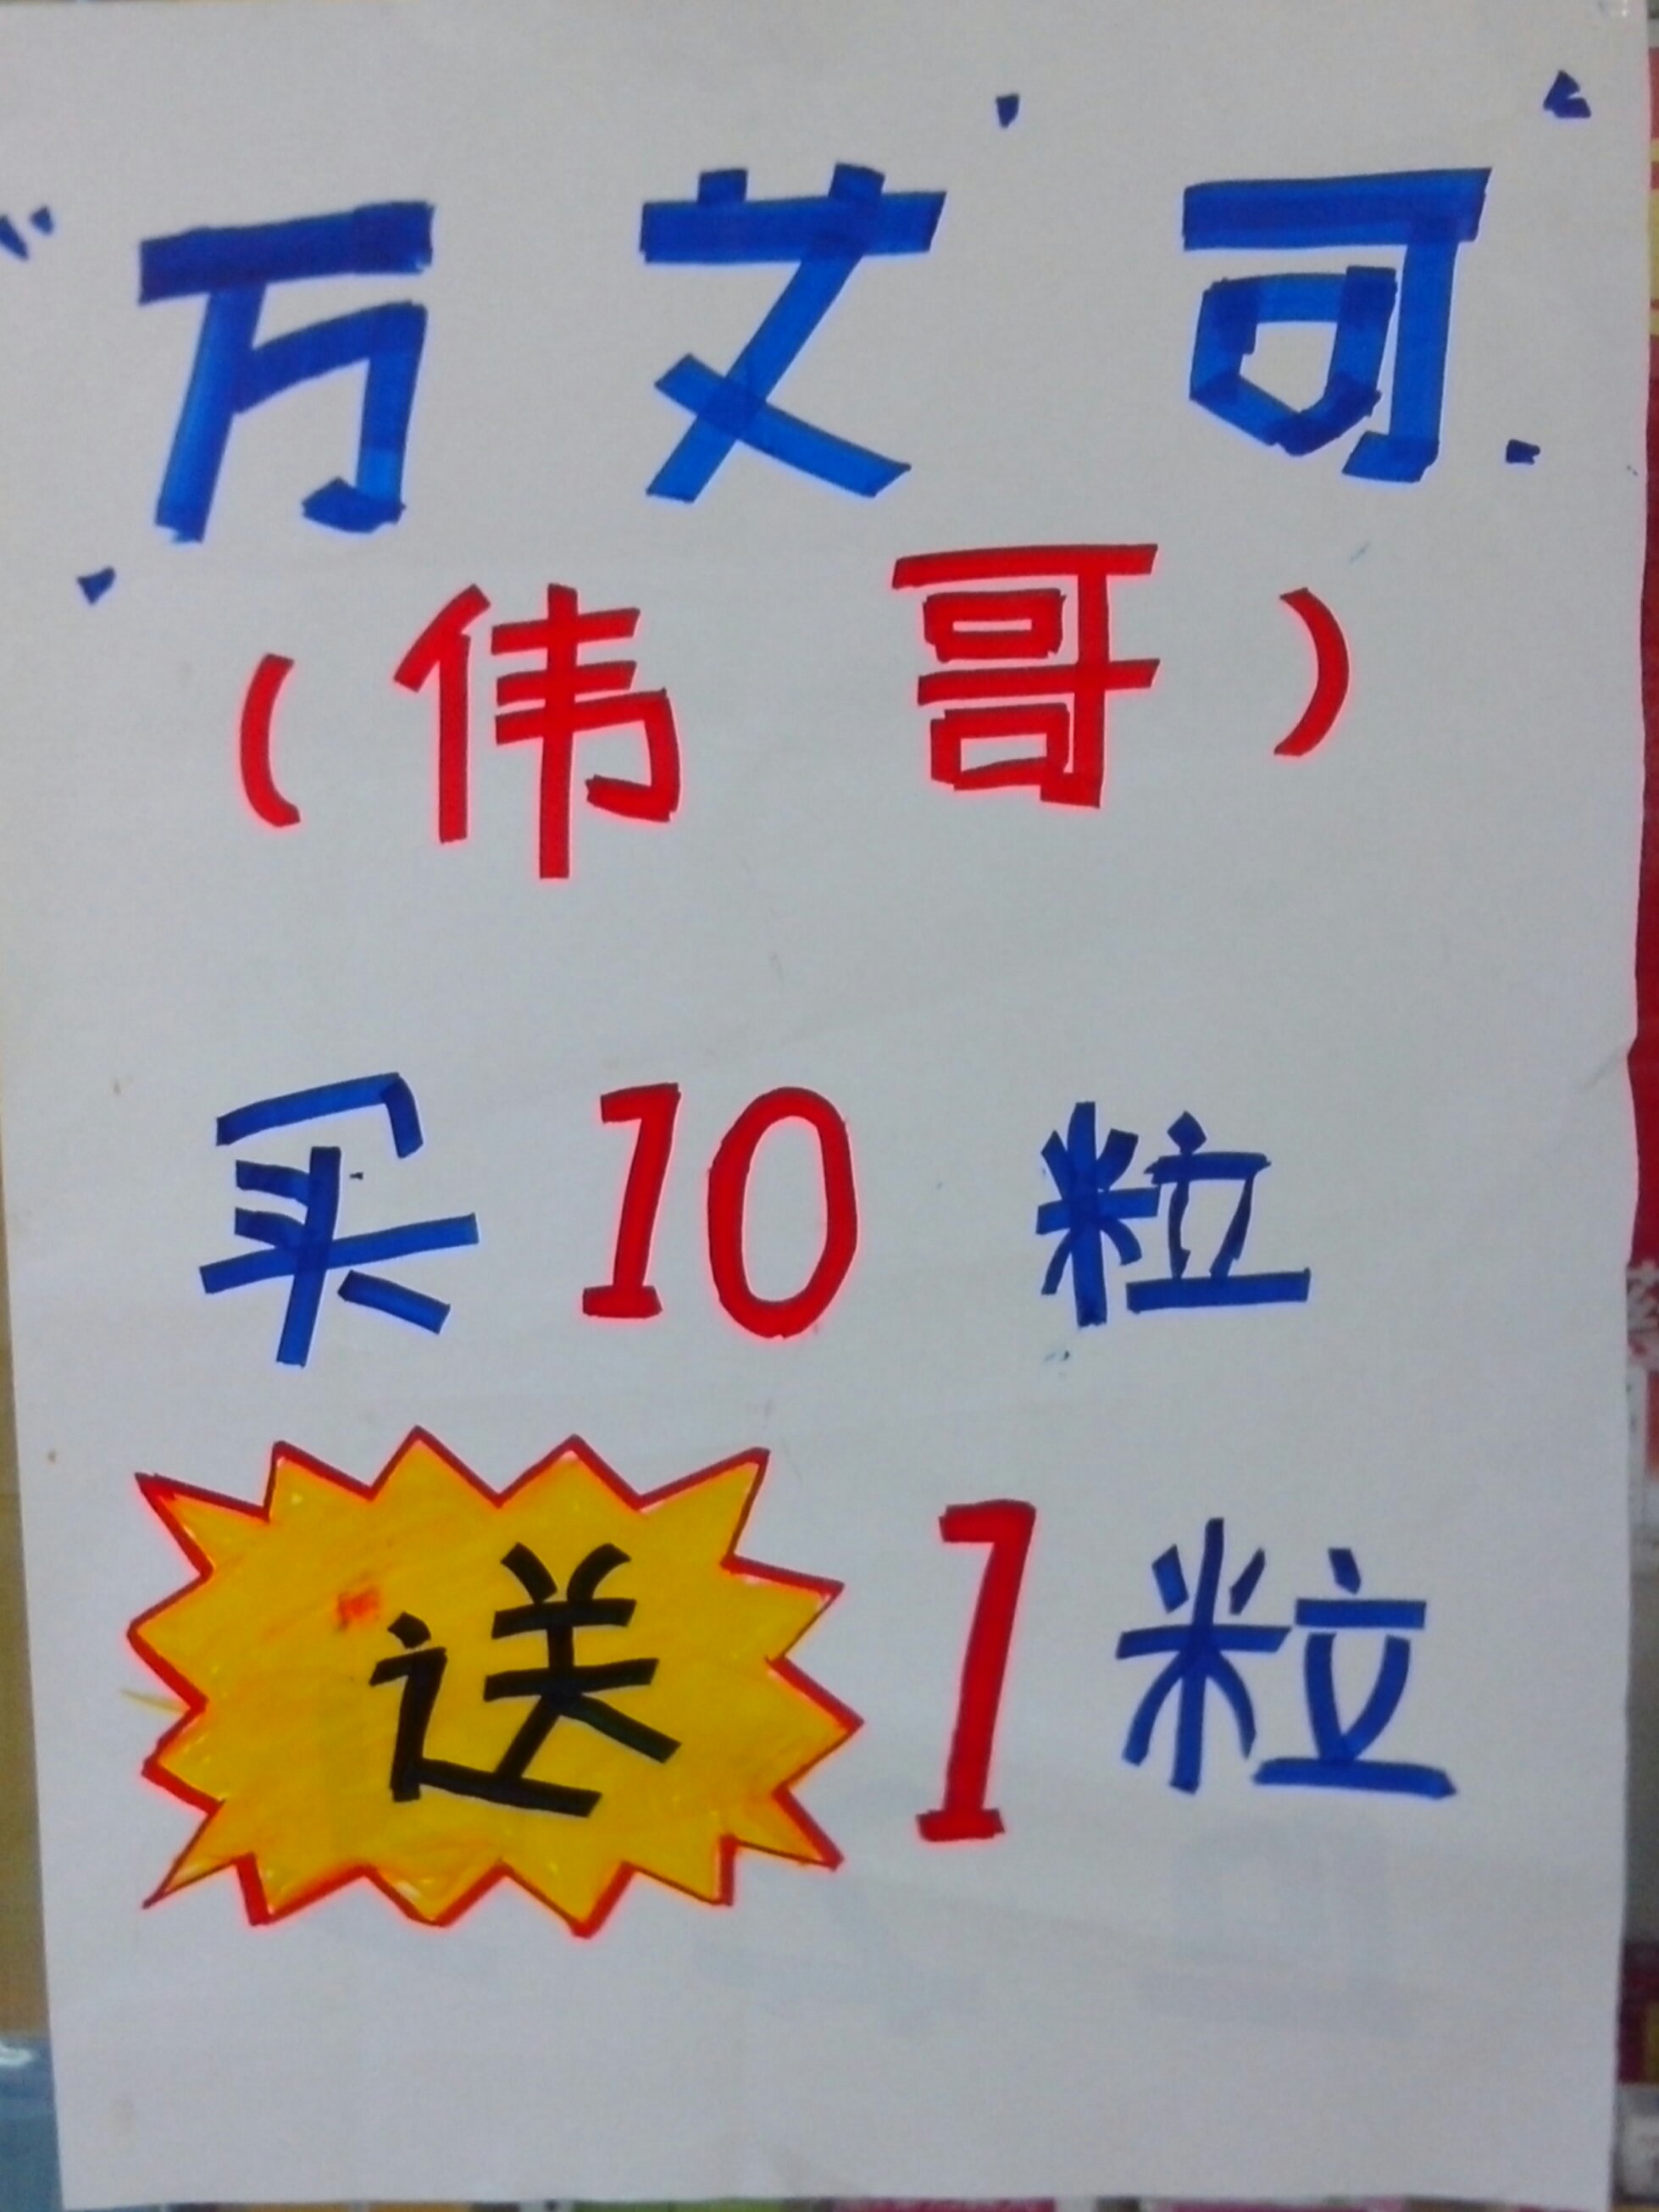 万艾可
（伟哥）
买10粒
送1粒